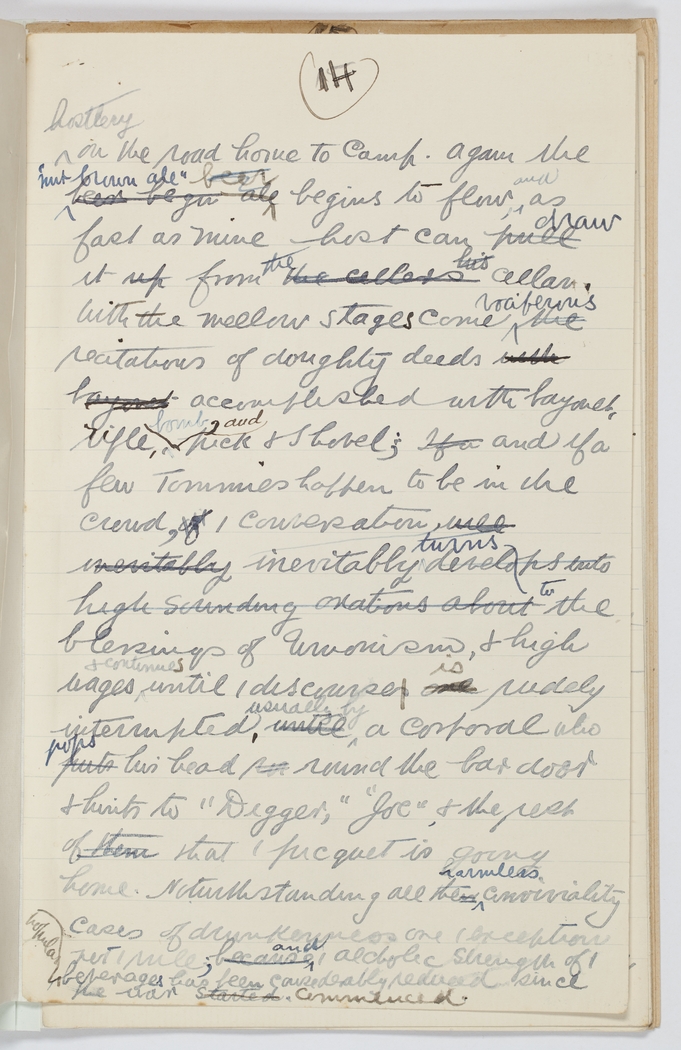 14
hostlery
on the road home to Camp. Again the
"nut brown ale" beer
beer begin ale begins to flow, and as
fast as mine host can pull draw
it up from the the cellers his cellar.
With the mellow stages come vociferous the
recitations of doughty deeds with
bayonet accomplished with bayonet,
rifle, bomb, and pick & shovel; If a and if a
few Tommies happen to be in the
crowd, 1 conversation, well
inevitably inevitably turns develops into
high sounding orations about to the
blessings of Unionism, & high
wages, & continues until 1 discourses is one rudely
interrupted, until usually by a corporal who
pops puts his head in round the bar door
& hints to "Digger," "Joe", & the rest
of them that 1 picquet is going
home. Notwithstanding all this harmless conviviality
cases of drunkenness are 1 exception
not 1 rule; because and 1 alcholic strength of 1
popular beverages has been considerably reduced since
the war started. commenced.